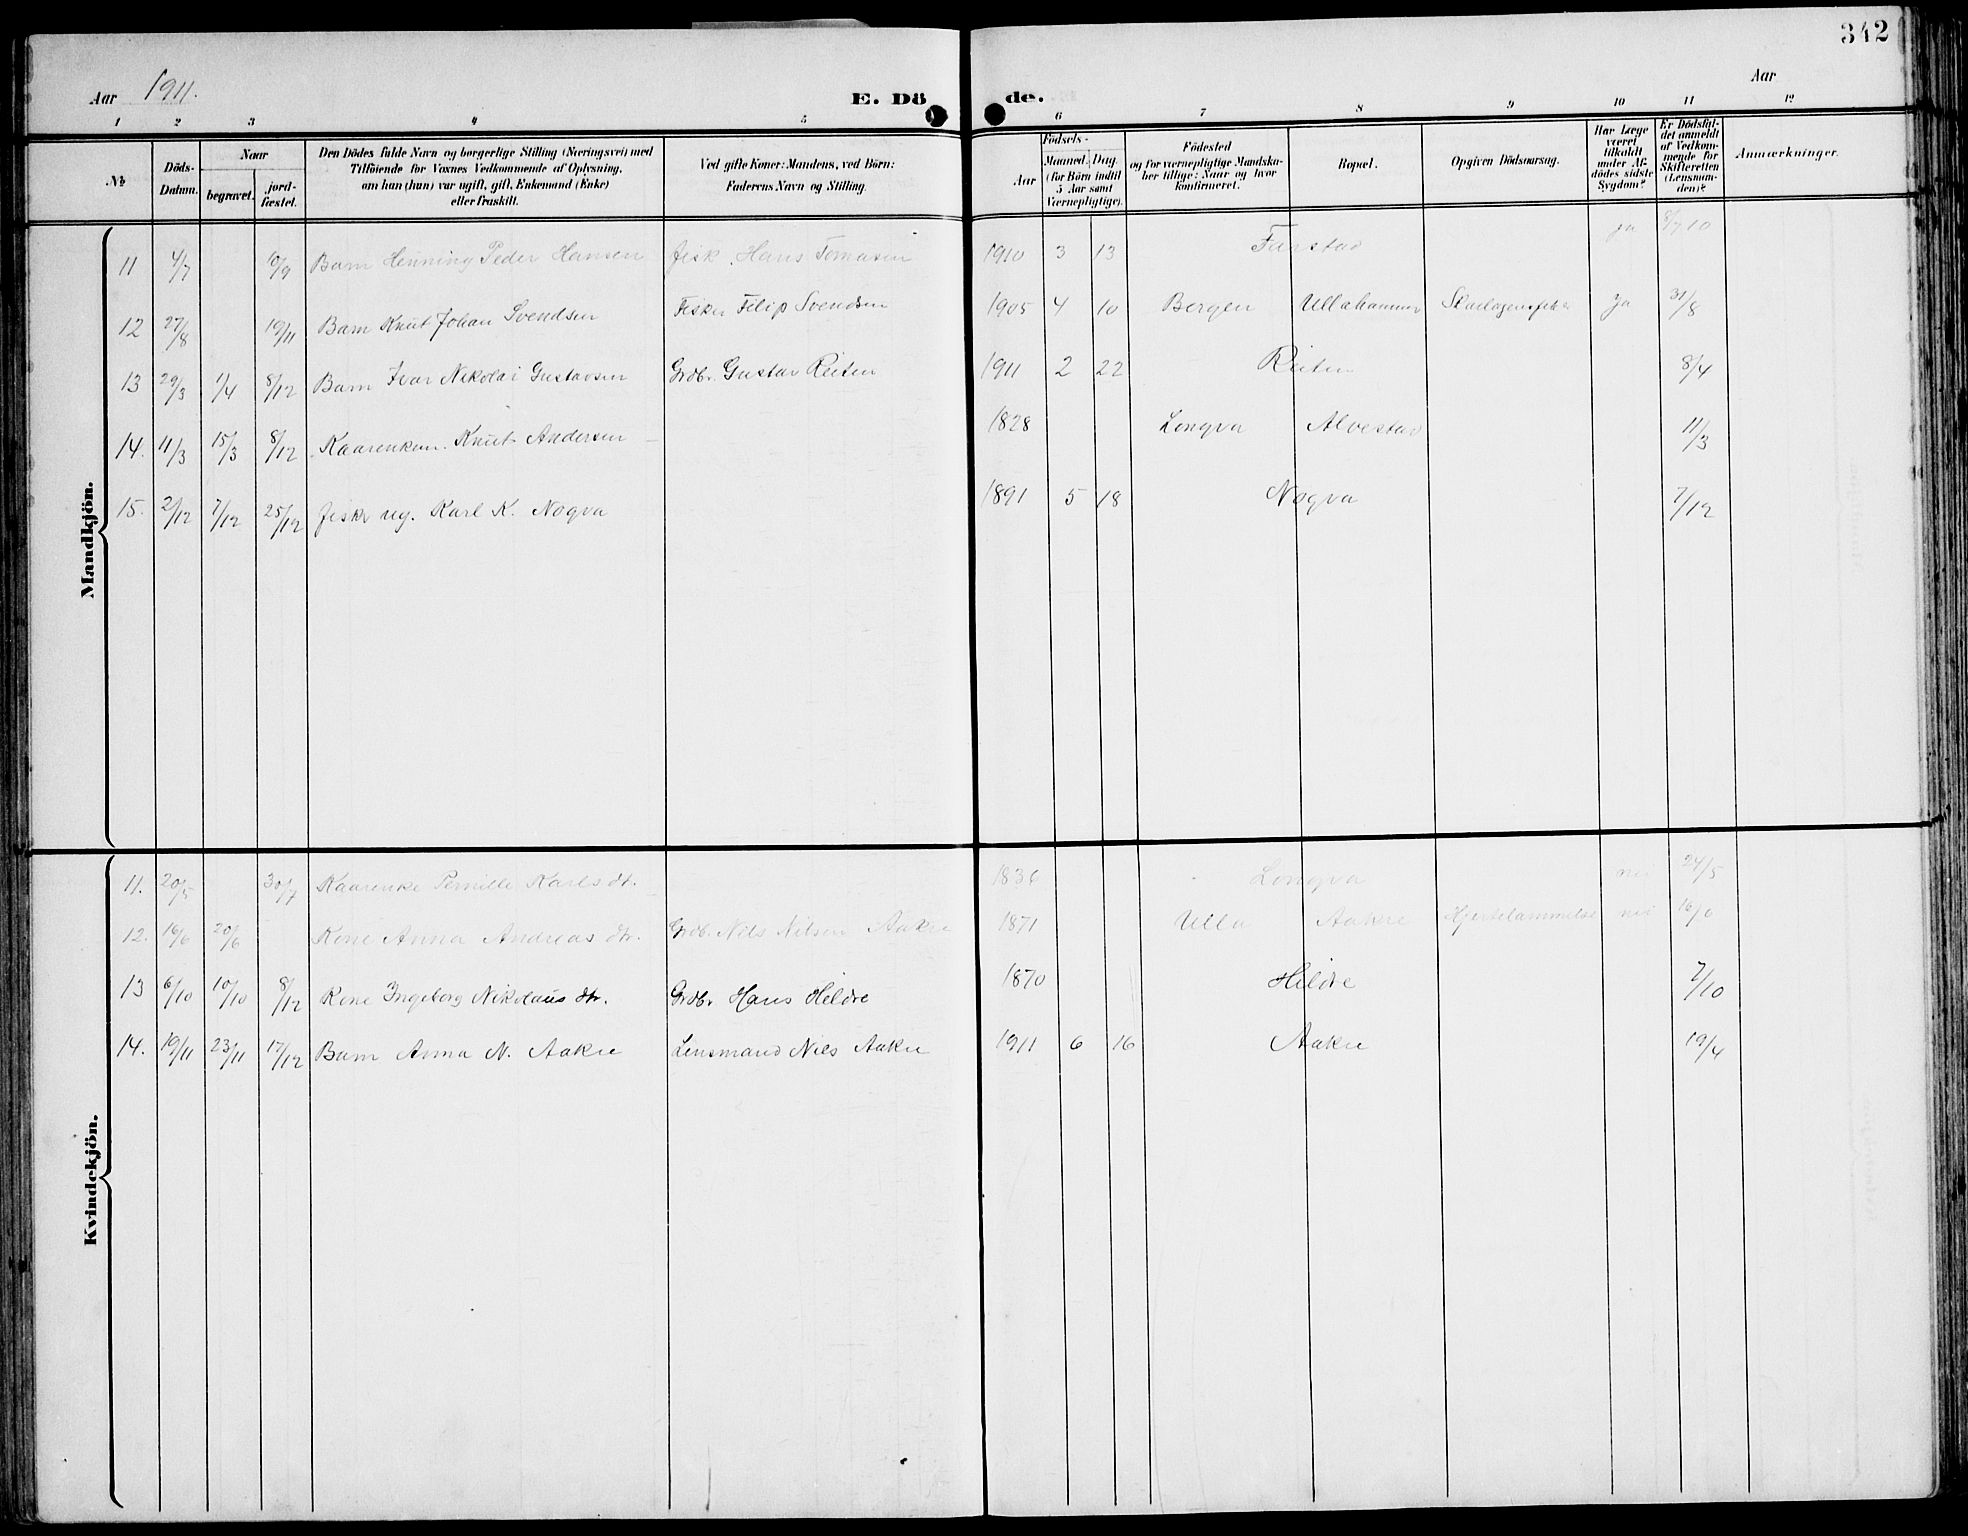 342
Aar 1911.
E. Döde.
Aar
1 2 3 4 5 6 7 8 9 10 11 12
№
Döds-Datum.
Naar
begravet.
jord-fæstet.
Den Dödes fulde Navn og borgerlige Stilling (Næringsvei) med
Tilföiende for Voxnes Vedkommende af Oplysning,
om han (hun) var ugift, gift, Enkemand (Enke)
eller fraskilt.
Ved gifte Koner: Mandens, ved Börn:
Faderens Navn og Stilling.
Födsels-
Aar
Maaned. Dag.
(for Börn indtil
5 Aar samt
Værnepligtige).
Födested
og for værnepligtige Mandska-
ber tillige: Naar og hvor
konfirmeret.
Bopæl.
Opgiven Dödsaarsag.
Har Læge
været
tilkaldt
under Af-
dödes sidste
Sygdom?
Er Dödsfal-
det anmeldt
af Vedkom-
mende for
Skifteretten
(Lensman-
den)?
Anmærkninger.
Mandkjön.
11 4/7 10/9 Barn Henning Peder Hansen Fisk. Hans Tomasen 1910 3 13 Farstad ja 8/7 10
12 27/8 19/11 Barn Knut Johan Svendsen Fisker Filip Svendsen 1905 4 10 Bergen Ullahammer ja 31/8
13 29/3 1/4 8/12 Barn Ivar Nikolai Gustavsen Grdbr. Gustav Reiten 1911 2 22 Reiten 8/4
14. 11/3 15/3 8/12 Kaarenkem. Knut Andersen 1828 Longva Alvestad 11/3
15. 2/12 7/12 25/12 Fisker ug. Karl K. Nogva 1891 5 18 Nogva 7/12
Kvindekjön.
11. 20/5 30/7 Kaarenke Pernille Karlsdt. 1836 Longva nei 24/5
12. 16/6 20/6 Kone Anna Andreasdtr. Grdb. Nils Nilsen Aakre 1871 Ulla Aakre Hjertelammelse nei
13 6/10 10/10 8/12 Kone Ingeborg Nikolausdtr. Grdbr. Hans Hildre 1870 Hildre 7/10
14. 19/11 23/11 17/12 Barn Anna N. Aakre Lensmand Nils Aakre 1911 6 16 Aakre 19/4